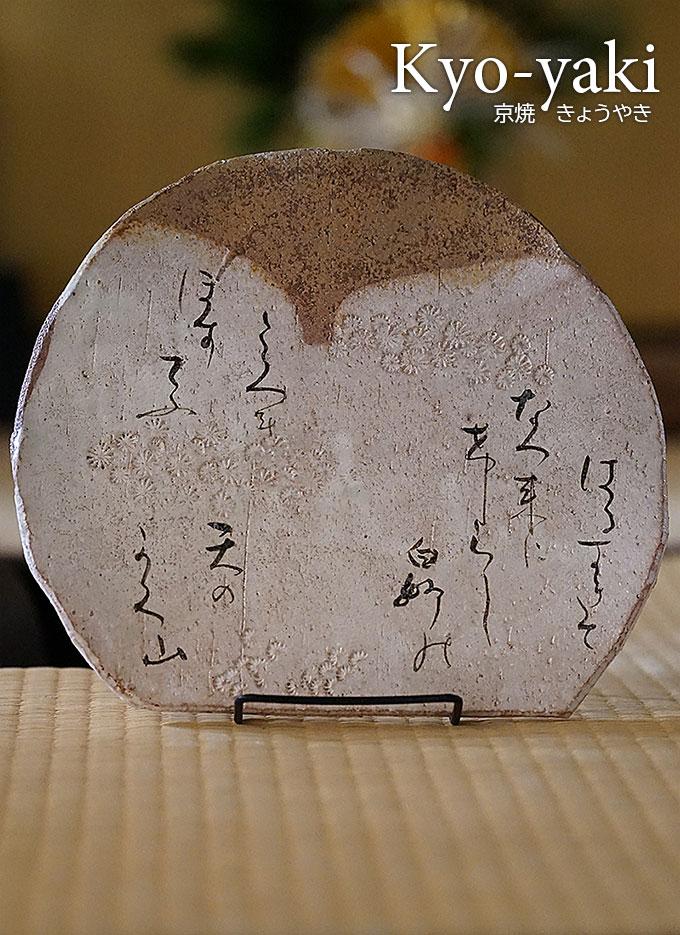 Kyo-yaki
京焼 きょうやき
はるすきて
なつ来に
けらし
白妙の
ころも
ほす
てふ
天の
かく山